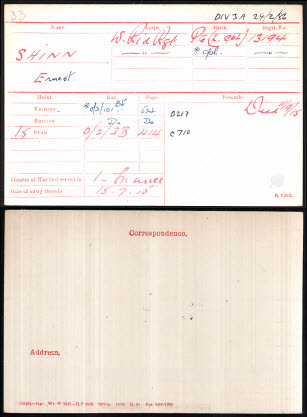 33 DIV 3A 24/2/86
Name. Corps. Rank. Regtl. No.
SHINN W. Rid Rgt Pte (L. Cpl.) 13194
Ernest —"— * Cpl. —"—
Medal. Roll. Page. Remarks.
Victory 522 Died
British Do Do B217
15 Star 0/2/3B 414 C710
Theatre of War first served in 1 - France
Date of entry therein 15.7.15 K. 1380.
Correspondence.
Address.